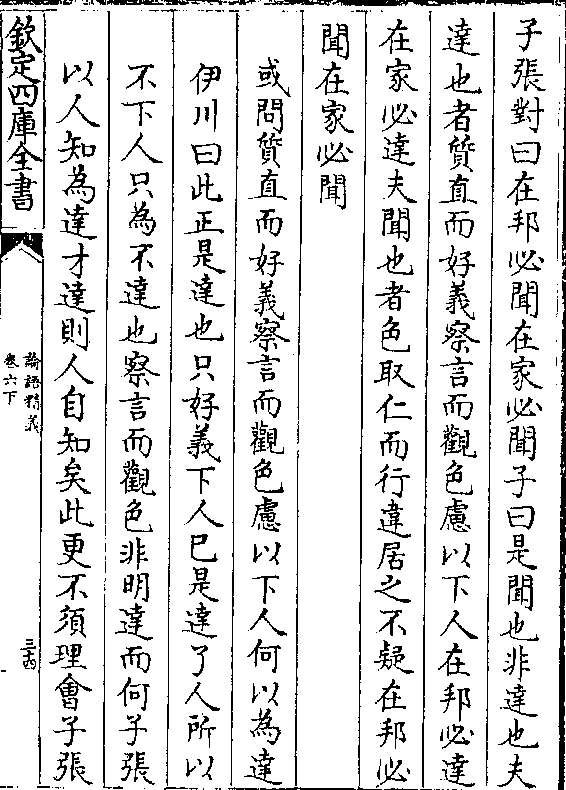 子張對曰在邦必聞在家必聞子曰是聞也非達也夫
達也者質直而好義察言而觀色慮以下人在邦必達
在家必達夫聞也者色取仁而行違居之不疑在邦必
聞在家必聞
或問質直而好義察言而觀色慮以下人何以為達
伊川曰此正是達也只好義下人已是達了人所以
不下人只為不達也察言而觀色非明達而何子張
以人知為達才達則人自知矣此更不須理會子張
欽定四庫全書
論語精義
卷六下
三十四